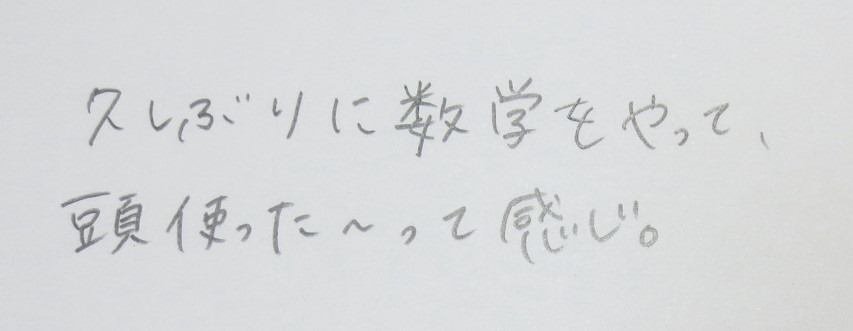 久しぶりに数学をやって、
頭使った〜って感じ。